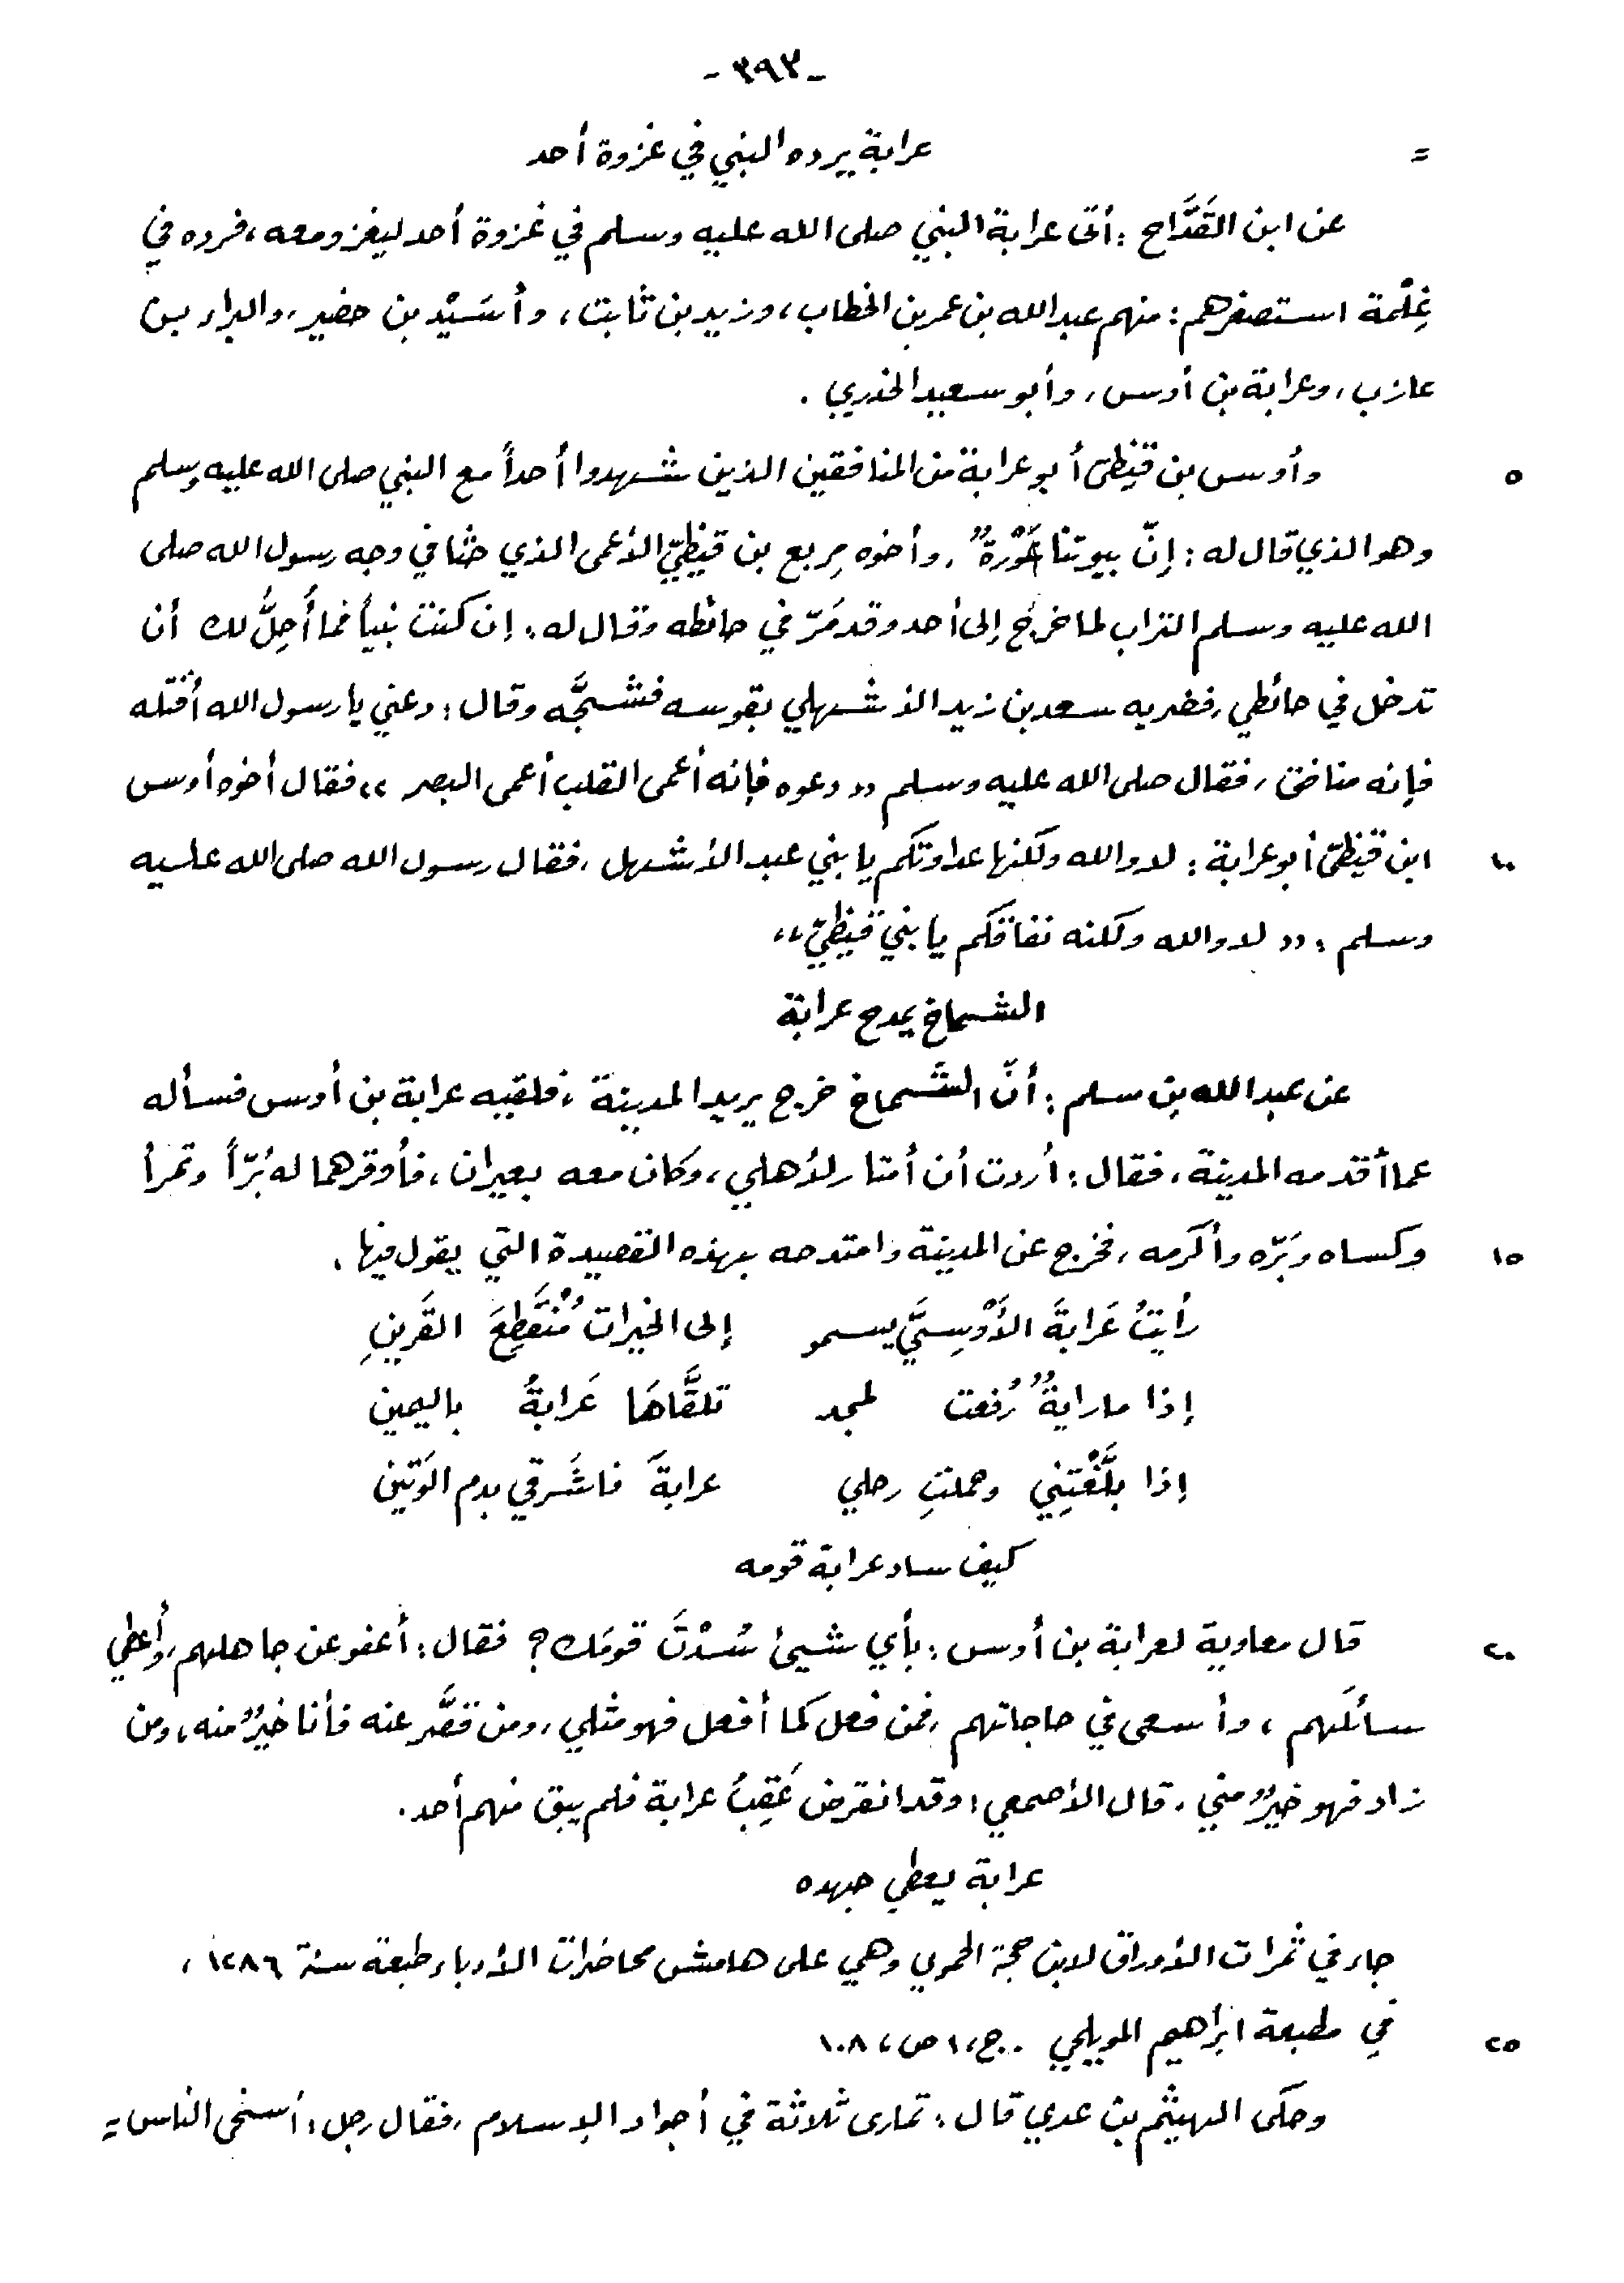 - ٣٩٣ -
= عرابة يرده النبي في غزوة أحد
عن ابن القَدَّاح : أتى عرابة النبي صلى الله عليه وسلم في غزوة أحد ليغزو معه ، فرده في
غِلْمة استصغرهم : منهم عبد الله بن عمر بن الخطاب ، وزيد بن ثابت ، وأسَيْد بن حضير ، والبراء بن
عازب ، وعرابة بن أوس ، وأبو سعيد الخدري .
٥ وأوس بن قيظيّ أبو عرابة من المنافقين الذين شهدوا أحداً مع النبي صلى الله عليه وسلم
وهو الذي قال له : إنّ بيوتنا عَوْرةٌ ، وأخوه مِربع بن قيظيّ الأعمى الذي حثا في وجه رسول الله صلى
الله عليه وسلم التراب لما خرج إلى أحد وقد مَرّ في حائطه وقال له : إن كنت نبياً فما أُحِلُّ لك أن
تدخل في حائطي ، فضربه سعد بن زيد الأشهلي بقوسه فشجَّه وقال : دعني يا رسول الله أقتله
فإنه منافق ، فقال صلى الله عليه وسلم « دعوه فإنه أعمى القلب أعمى البصر » فقال أخوه أوس
١٠ ابن قيظيّ أبو عرابة : لا والله ولكنها عداوتكم يا بني عبد الأشهل ، فقال رسول الله صلى الله عليه
وسلم : « لا والله ولكنه نفاقكم يا بني قيظيّ »
الشماخ يمدح عرابة
عن عبد الله بن سلم : أنّ الشَّماخ خرج يريد المدينة ، فلقيه عرابة بن أوس فسأله
عما أقدمه المدينة ، فقال : أردت أن أمتار لأهلي ، وكان معه بعيران ، فأوقرهما له بُرّاً وتمراً
١٥ وكساه وبَرّه وأكرمه ، فخرج عن المدينة وامتدحه بهذه القصيدة التي يقول فيها .
رأيتُ عَرابةَ الأَوْسِيَّ يسمو إلى الخيرات مُنْقَطِعَ القَرينِ
إذا ما رايةٌ رُفعت لمجد تلقَّاهَا عَرابةُ باليمين
إذا بلَّغْتِني وحملتِ رحلي عرابةَ فاشْرقي بدم الوَتين
كيف ساد عرابة قومه
٢٠ قال معاوية لعرابة بن أوس : بأي شيئ سُدْتَ قومَك ؟ فقال : أعفو عن جاهلهم ، وأُعطي
سائلَهم ، وأسعى في حاجاتهم ، فمن فعل كما أفعل فهو مثلي ، ومن قصَّر عنه فأنا خيرٌ منه ، ومن
زاد فهو خيرٌ مني ، قال الأصمعي : وقد انقرض عَقِبُ عرابة فلم يبق منهم أحد .
عرابة يعطي جهده
جاء في ثمرات الأوراق لابن حجة الحموي وهي على هامش محاضرات الأدباء طبعة سنة ١٢٨٦ ،
٢٥ في مطبعة ابراهيم المويلحي . ج، ١ ص، ١٠٨
وحكى الهيثم بن عدي قال : تمارى ثلاثة في أجواد الإسلام ، فقال رجل : أسخى الناس =